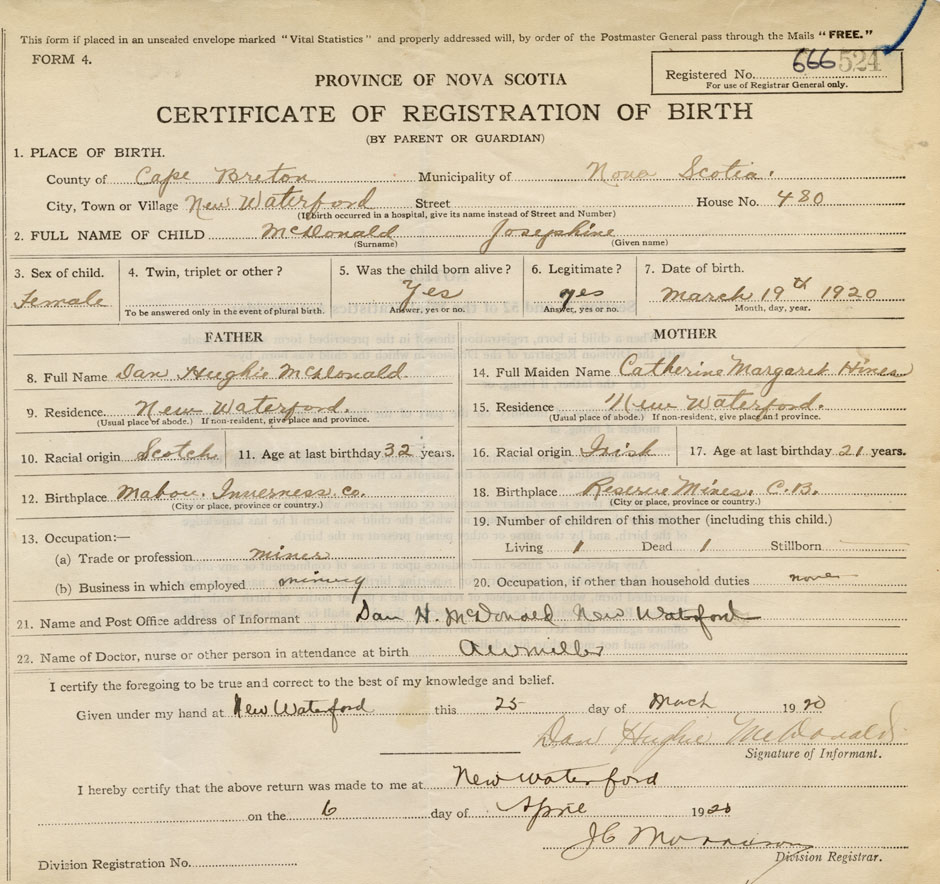 This form if placed in an unsealed envelope marked "Vital Statistics" and properly addressed will, by order of the Postmaster General pass through the Mails "FREE."
FORM 4.
PROVINCE OF NOVA SCOTIA
Registered No. 666 524
For use of Registrar General only.
CERTIFICATE OF REGISTRATION OF BIRTH
(BY PARENT OR GUARDIAN)
1. PLACE OF BIRTH.
County of Cape Breton Municipality of Nova Scotia.
City, Town or Village New Waterford Street House No. 480
(If birth occurred in a hospital, give its name instead of Street and Number)
2. FULL NAME OF CHILD McDonald Josephine
(Surname) (Given name)
3. Sex of child. 4. Twin, triplet or other? 5. Was the child born alive? 6. Legitimate? 7. Date of birth.
Female Yes yes March 19th 1920
To be answered only in the event of plural birth. Answer, yes or no. Answer, yes or no. Month, day, year.
FATHER MOTHER
8. Full Name Dan Hughie McDonald 14. Full Maiden Name Catherine Margaret Hines
9. Residence. New Waterford. 15. Residence New Waterford.
(Usual place of abode.) If non-resident, give place and province. (Usual place of abode.) If non-resident, give place and province.
10. Racial origin Scotch 11. Age at last birthday 32 years. 16. Racial origin Irish 17. Age at last birthday 21 years.
12. Birthplace Mabou. Inverness. Co. 18. Birthplace Reserve Mines. C.B.
(City or place, province or country.) (City or place, province or country.)
13. Occupation:— 19. Number of children of this mother (including this child.)
(a) Trade or profession miner Living 1 Dead 1 Stillborn
(b) Business in which employed mining 20. Occupation, if other than household duties none
21. Name and Post Office address of Informant Dan H. McDonald New Waterford
22. Name of Doctor, nurse or other person in attendance at birth
I certify the foregoing to be true and correct to the best of my knowledge and belief.
Given under my hand at New Waterford this 25 day of March 1920
Dan Hughie McDonald
Signature of Informant.
I hereby certify that the above return was made to me at New Waterford
on the 6 day of April 1920
Division Registration No. Division Registrar.